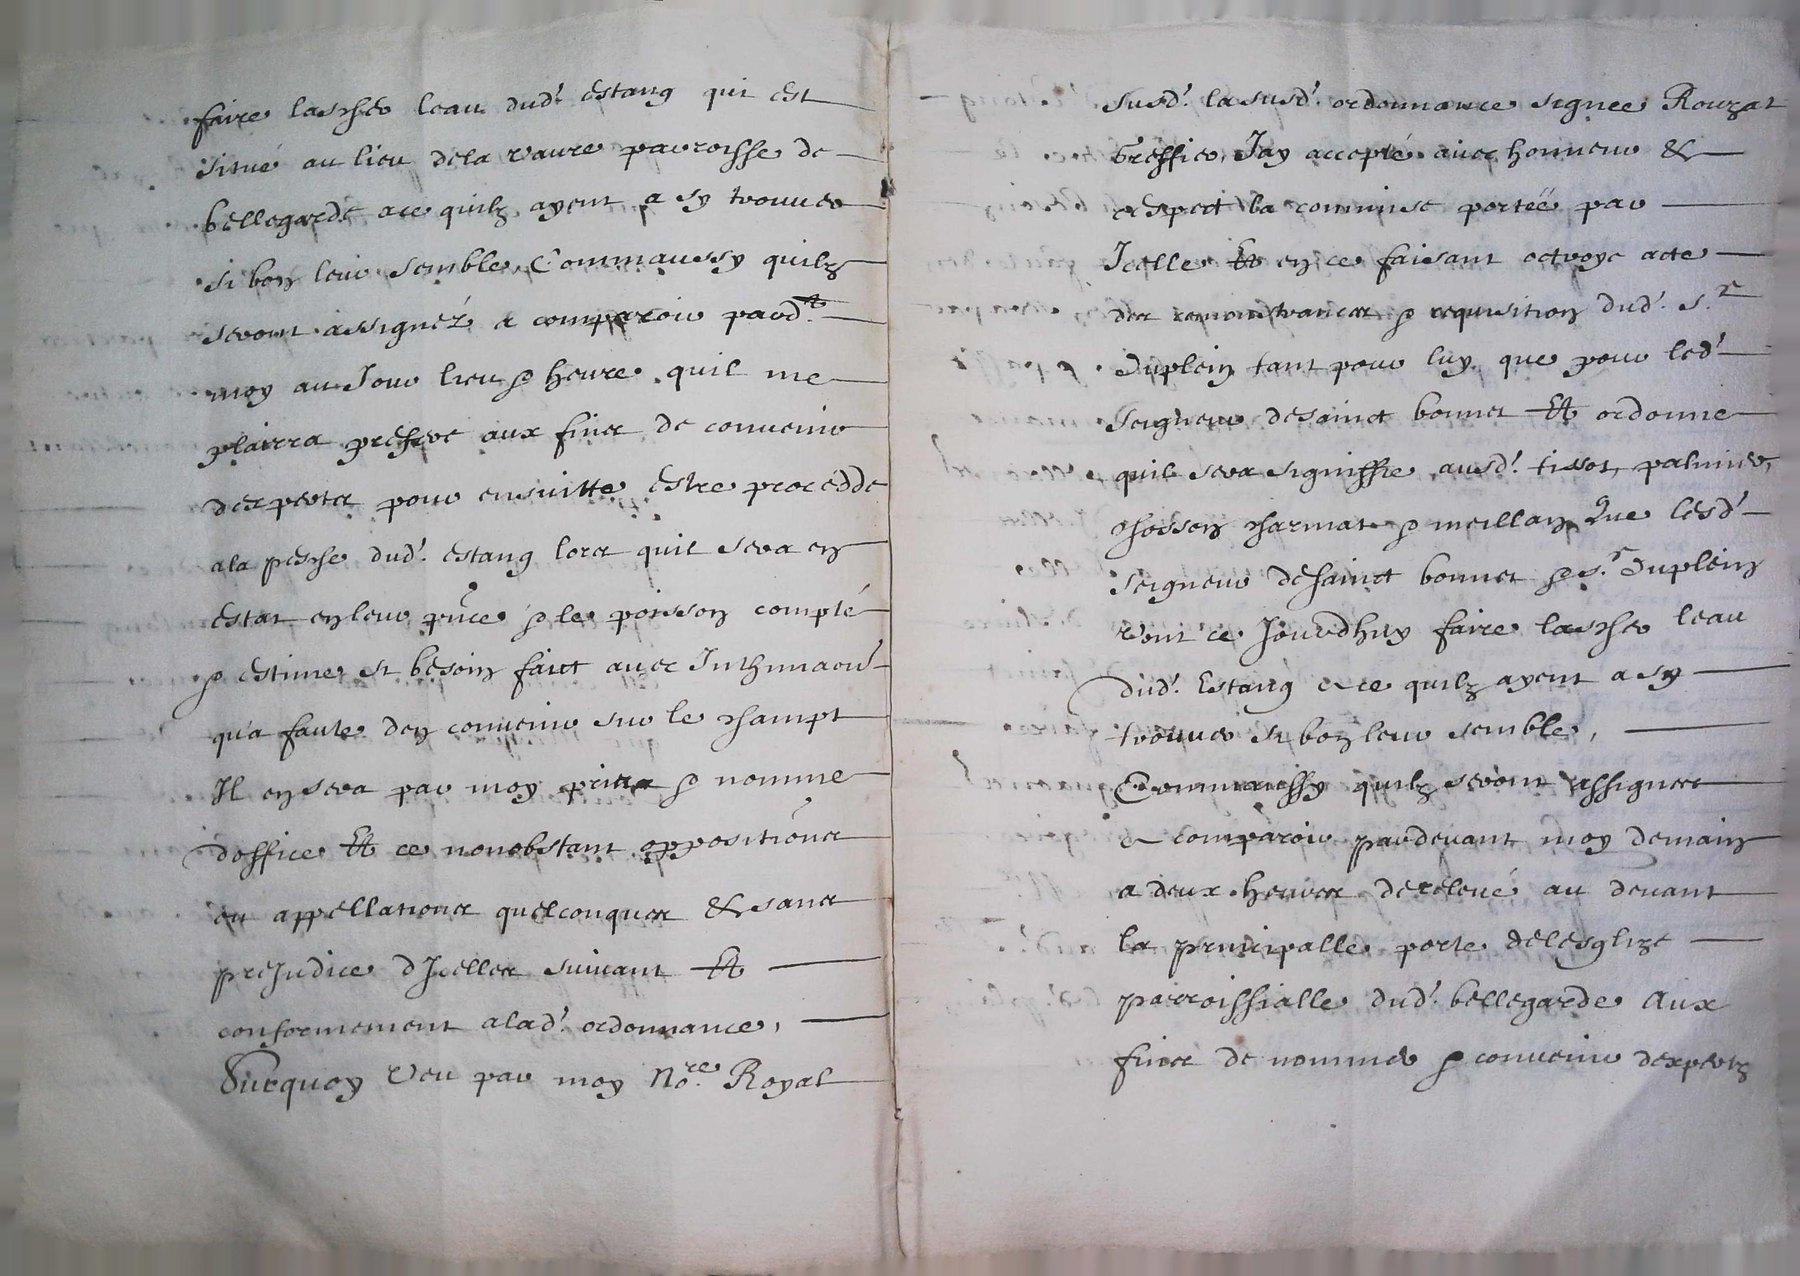 faire lascher leau dud.t estang qui est
situé au lieu dela vaure parroisse de
bellegarde ace quilz ayent a sy trouver
si bon leur semble, Commaussy quilz
seront assignéz a comparoir pard.t
moy au Jour lieu & heure quil me
plairra prefere aux fines de convenir
dexpertz pour ensuitte estre procédde
ala pesche dud.t estang lors quil sera en
estat enleur pnce & le poisson compté
& estime si besoin faict avec Inthimaon
qua faute den convenir sur le champt
Il ensera par moy prins & nomme
doffice Et ce nonobstant oppositiones
ou appellationes quelconques & sans
preJudice dJcelles suivant Et
conformement alad.t ordonnance,
Surquoy Veu par moy No.re Royal
susd.t lasusd.t ordonnance signee Rouzat
Greffier, Jay accepté avec honneur &
respect la commise portéé par
Jcelle Et en ce faisant octroye acte
des remonstrances & requisition dud.t S.r
Duplein tant pour luy que pour led.t
seigneur desainct bonnet Et ordonne
quil sera signiffie ausd.t tissot, palmier,
chosson charmat & meillan Que lesd.t
seigneur desainct bonnet & s.r Duplein
vont ce Jourdhuy faire lascher leau
dud.t Estang a ce quilz ayent a sy
trouver si bon leur semble,
Commaussy quilz seront assignes
a comparoir pardevant moy demain
a deux heures derelevé au devant
la principalle porte delesglize
parroissialle dud.t bellegarde Aux
fines de nommer & convenir dexpertz